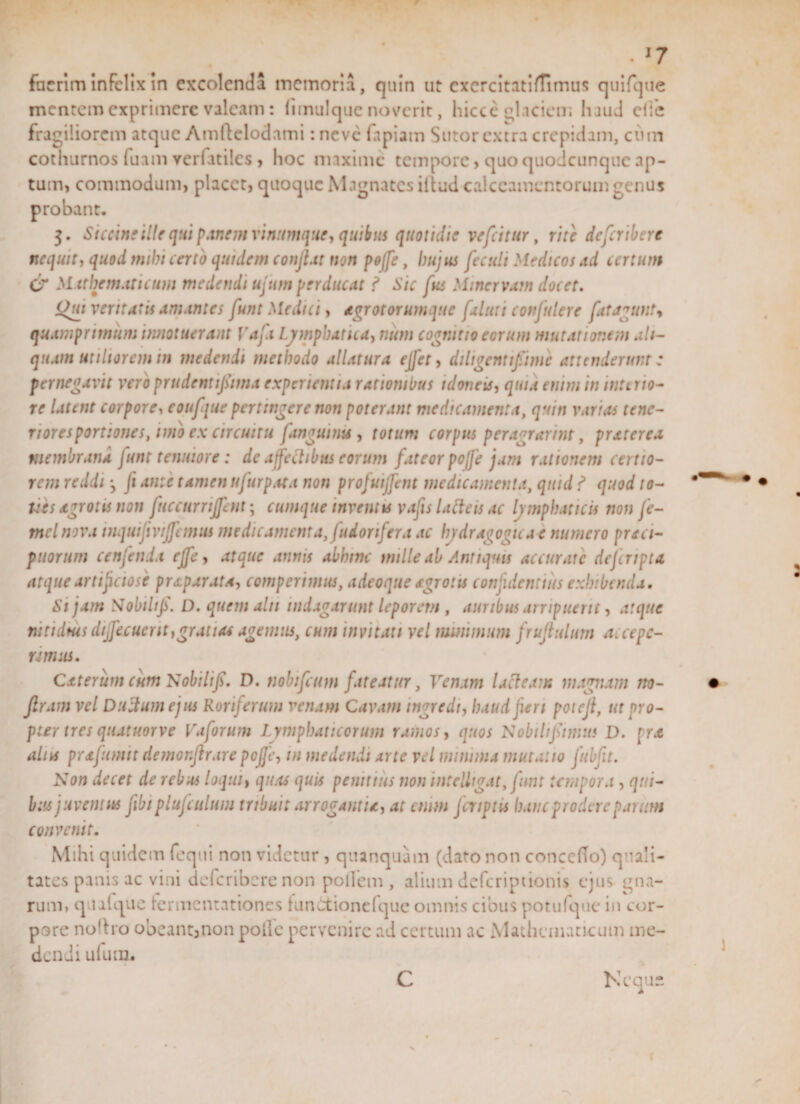 17
fuerim infelix in excolendâ memoriâ, quin ut exercitatiſſimus quiſque
mentem exprimere valeam: ſimulque noverit, hiccè glaciem haud eſſe
fragiliorem atque Amſtelodami: nevè ſapiam Sutor extra crepidam, cùm
cothurnos ſuam verſatiles, hoc maximè tempore, quo quodcunque ap-
tum, commodum, placet, quoque Magnates iſtud calceamentorum genus
probant.
3. Siccine ille qui panem vinumque, quibus quotidie veſcitur, ritè deſcribere
nequit, quod mihi certò quidem conſtat non poſſe, hujus ſeculi Medicos ad certum
& Mathematicum medendi uſum perducat? Sic ſus Minervam docet.
Qui veritatis amantes ſunt Medici, ægrotorumque ſaluti conſulere ſatagunt,
quamprimùm innotuerant Vaſa Lymphatica, nùm cognitio eorum mutationem ali-
quam utiliorem in medendi methodo allatura eſſet, diligentiſſimè attenderunt:
pernegavit verò prudentiſſima experientia rationibus idoneis, quià enim in interio-
re latent corpore, eouſque pertingere non poterant medicamenta, quin varias tene-
riores portiones, imò ex circuitu ſanguinis, totum corpus peragrarint, præterea
membranâ ſunt tenuiore: de affectibus eorum fateor poſſe jam rationem certio-
rem reddi; ſi antè tamen uſurpata non profuiſſent medicamenta, quid? quod to-
tiès ægrotis non ſuccurriſſent; cumque inventis vaſis lacteis ac lymphaticis non ſe-
mel nova inquiſiviſſemus medicamenta, ſudorifera ac hydragogica è numero præci-
puorum cenſenda eſſe, atque annis abhinc mille ab Antiquis accuratè deſcripta
atque artificiosè præparata, comperimus, adeoque ægrotis confidentiùs exhibenda.
Si jam Nobiliſſ. D. quem alii indagarunt leporem, auribus arripuerit, atque
nitidius diſſecuerit, gratias agemus, cum invitati vel minimum fruſtulum accepe-
rimus.
Cæterùm cùm Nobiliſſ. D. nobiſcum fateatur, Venam lacteam magnam no-
ſtram vel Ductum ejus Roriferum venam Cavam ingredi, haud fieri poteſt, ut pro-
pter tres quatuorve Vaſorum Lymphaticorum ramos, quos Nobiliſſimus D. præ
aliis præſumit demonſtrare poſſe, in medendi arte vel minima mutatio ſubſit.
Non decet de rebus loqui, quas quis penitiùs non intelligat, ſunt tempora, qui-
bus juventus ſibi pluſculum tribuit arrogantiæ, at enim ſcriptis hanc prodere parùm
convenit.
Mihi quidem ſequi non videtur, quanquàm (dato non conceſſo) quali-
tates panis ac vini deſcribere non poſſem, alium deſcriptionis ejus gna-
rum, quaſque fermentationes functioneſque omnis cibus potuſque in cor-
pore noſtro obeant, non poſſe pervenire ad certum ac Mathematicum me-
dendi uſum.
C Neque